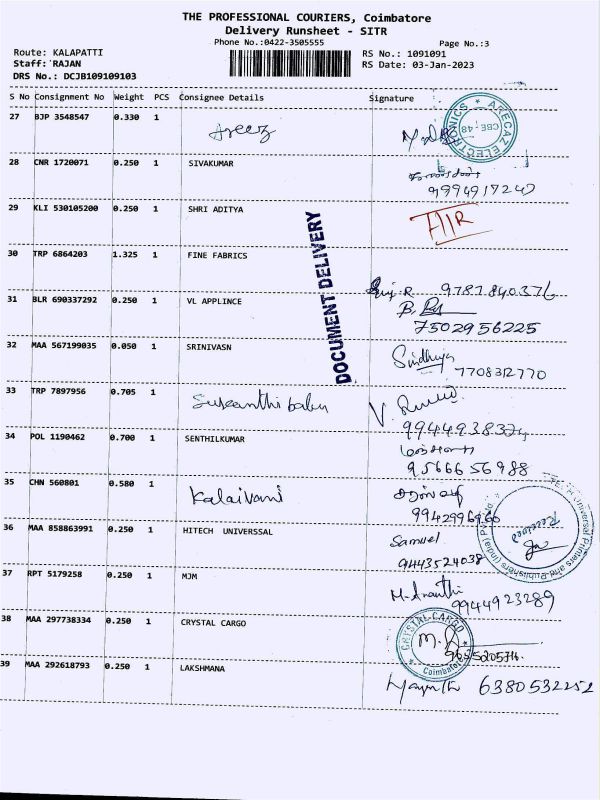 THE PROFESSIONAL COURIERS, Coimbatore
Delivery Runsheet - SITR
Phone No.:0422-3505555
Page No.:3
Route: KALAPATTI
RS No.: 1091091
Staff: RAJAN
RS Date: 03-Jan-2023
DRS No.: DCJB109109103
S No Consignment No Weight PCS Consignee Details Signature
27 BJP 3548547 0.330 1
ARECAZ ELECTRONICS CBE-48
28 CNR 1720071 0.250 1 SIVAKUMAR
9994917247
29 KLI 530105200 0.250 1 SHRI ADITYA
DOCUMENT DELIVERY
30 TRP 6864203 1.325 1 FINE FABRICS
9787840376
31 BLR 690337292 0.250 1 VL APPLINCE
7502956225
32 MAA 567199035 0.050 1 SRINIVASN Sindhuja
7708312770
33 TRP 7897956 0.705 1 Suseanthi babu
34 POL 1190462 0.700 1 SENTHILKUMAR
9566656988
35 CHN 560801 0.580 1 Kalaivani
36 MAA 858863991 0.250 1 HITECH UNIVERSSAL Samuel
9443524038
37 RPT 5179258 0.250 1 MJM M. Ananthi
9944923289
38 MAA 297738334 0.250 1 CRYSTAL CARGO
CRYSTAL CARGO Coimbatore
39 MAA 292618793 0.250 1 LAKSHMANA
6380532252